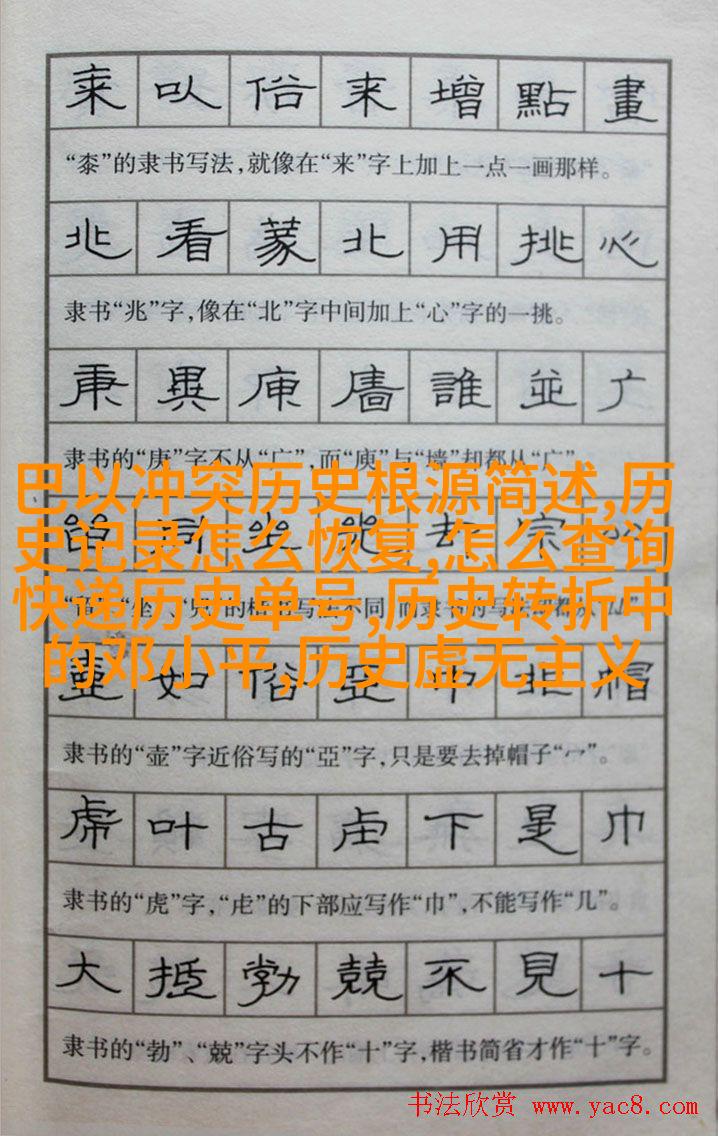 来 以 俗 来 增 點 畫
“桼”的隶书写法，就像在“来”字上加上一点一画那样。
兆 看 蒙 北 用 挑 心
隶书“兆”字，像在“北”字中间加上“心”字的一挑。
庚 異 庾 廧 誰 並 广
隶书的“庚”字不从“广”，而“庾”与“墙”却都从“广”
巴以冲突历史根源简述,历
史记录怎么恢复,怎么查询
快递历史单号,历史转折中
的邓小平,历史虚无主义
壺 如 俗 亞 中 非 帽
隶书的“壶”字近俗写的“亞”字，只是要去掉帽子“宀”。
虎 叶 古 虍 下 是 巾
隶书的“虎”字，“虍”的下部应写作“巾”，不能写作“几”。
大 抵 勃 兢 不 見 十
隶书的“勃”、“兢”字头不作“十”字，楷书简省才作“十”字。
书法欣赏 www.yac8.com